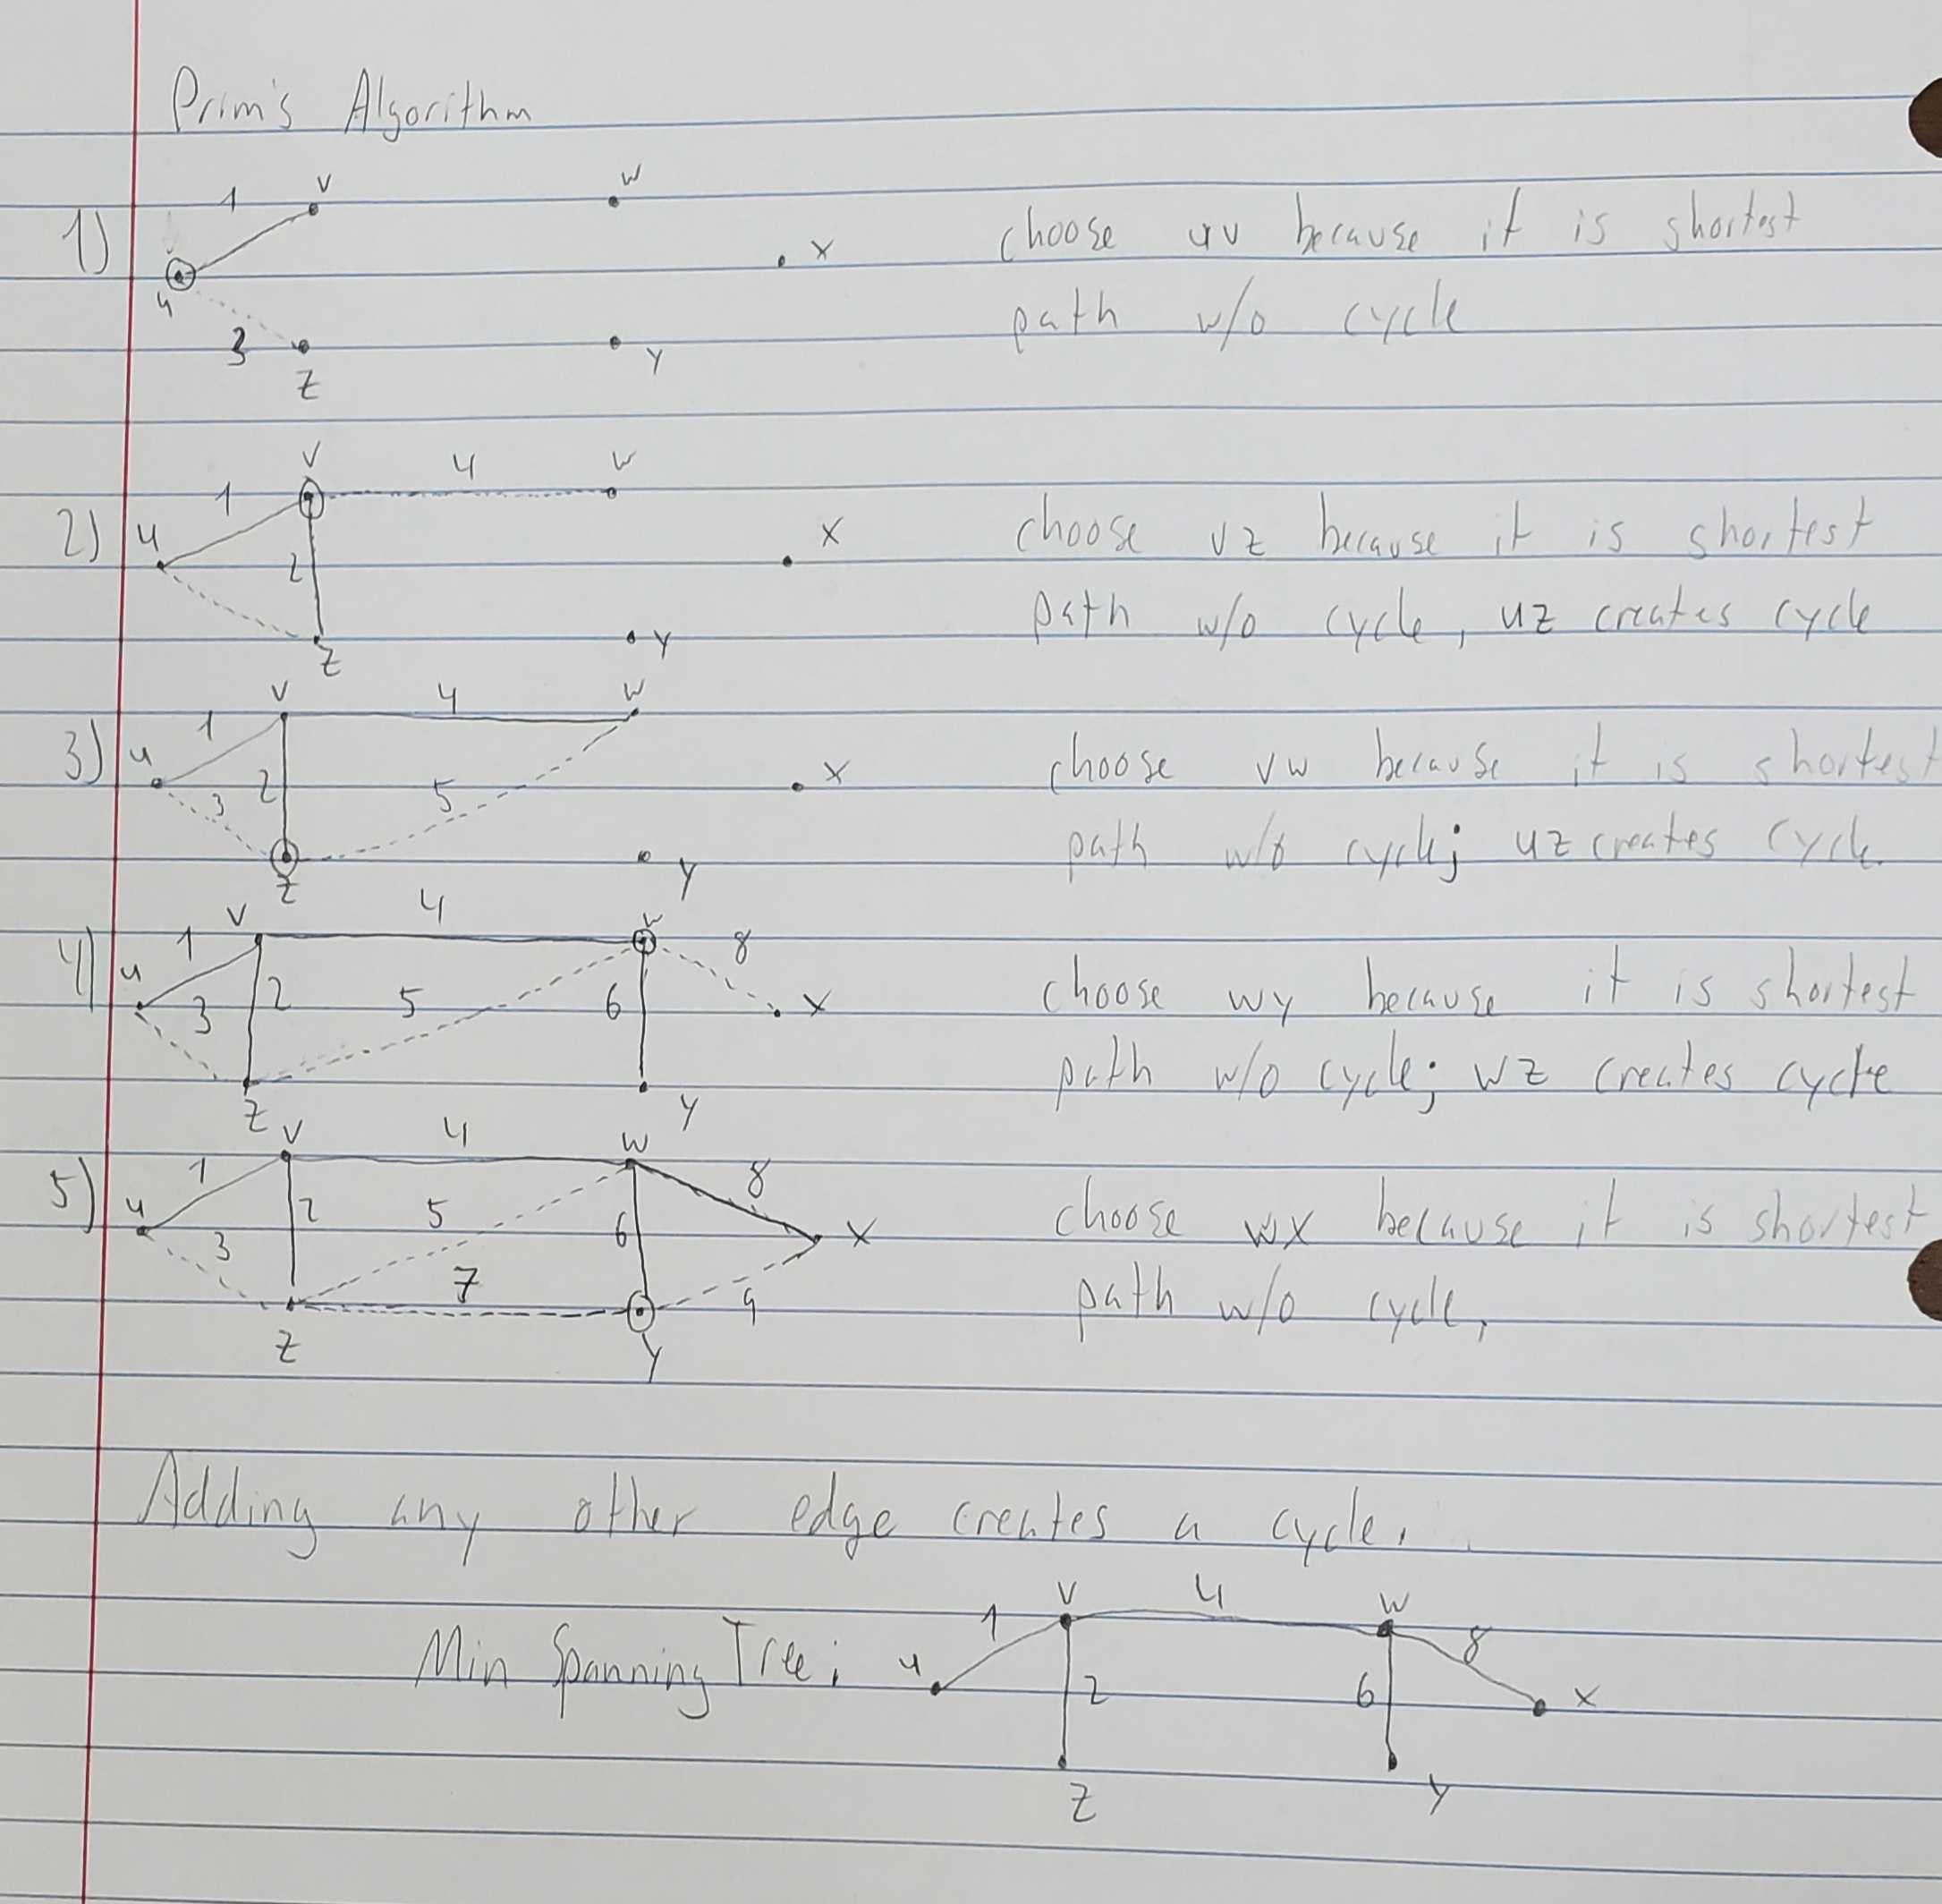 Prim's Algorithm
1 v w
1) choose uv because it is shortest
x
u path w/o cycle
3 y
z
v 4 w
1
2) u x choose vz because it is shortest
2
y path w/o cycle, uz creates cycle
z
v 4 w
1
3) u 2 x choose vw because it is shortest
3 5
y path w/o cycle; uz creates cycle
z
v 4 w 8
1
4) u 3 2 5 6 x choose wy because it is shortest
z y path w/o cycle; wz creates cycle
v 4 w
1 8
5) u 3 2 5 6 x choose wx because it is shortest
7 9 path w/o cycle,
z y
Adding any other edge creates a cycle.
v 4 w
1 8
Min Spanning Tree: u 2 6 x
z y